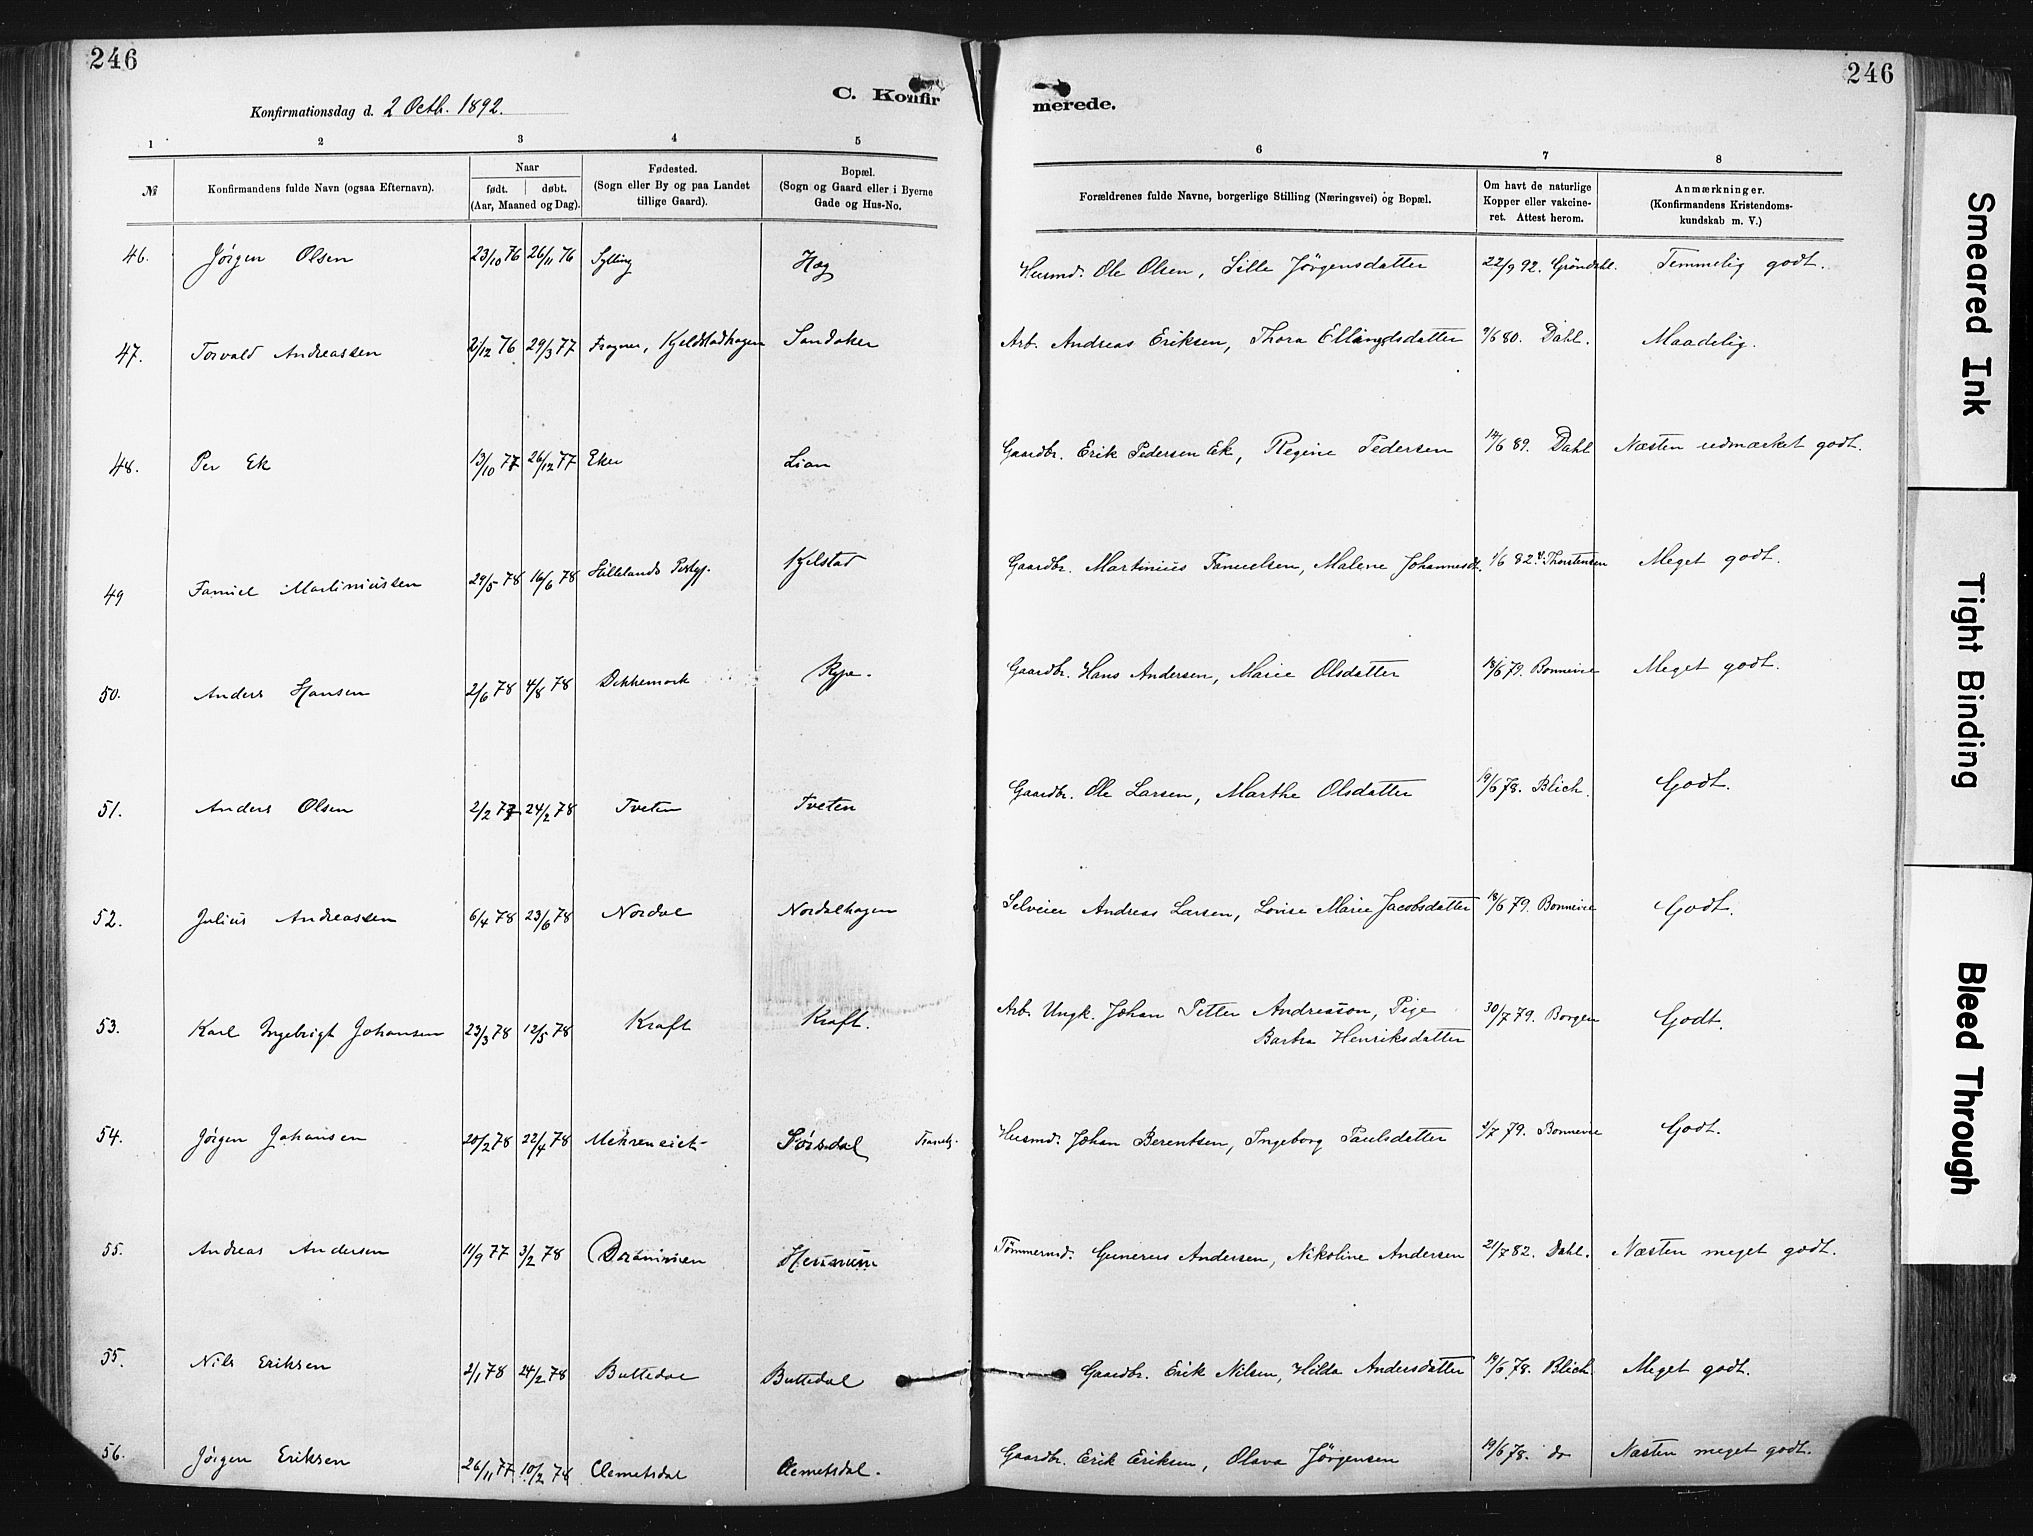 246
Konfirmationsdag d. 2 Octb. 1892.
C. Konfir
1 2 3 4 5
№ Konfirmandens fulde Navn (ogsaa Efternavn).
Naar født. døbt. (Aar, Maaned og Dag).
Fødested. (Sogn eller By og paa Landet tillige Gaard).
Bopæl. (Sogn og Gaard eller i Byerne Gade og Hus-No.
merede.
246
6 7 8
Forældrenes fulde Navne, borgerlige Stilling (Næringsvei) og Bopæl.
Om havt de naturlige Kopper eller vakcineret. Attest herom.
Anmærkninger. (Konfirmandens Kristendomskundskab m. V.)
46. Jørgen Olsen 23/10 76 26/11 76 Sylling Høg Husmd. Ole Olsen, Sille Jørgensdatter 22/9 92. Grøndahl. Temmelig godt.
47. Torvald Andreassen 2/12 76 29/3 77 Fragner, Kjeldstadhagen Sandaker Arb. Andreas Eriksen, Thora Ellingsdatter 9/6 80. Dahl. Maadelig.
48. Per Ek 13/10 77 26/12 77 Eker Lian Gaardbr. Erik Pedersen Ek, Regine Pedersen 14/6 89. Dahl Næsten udmærket godt.
49 Fanuel Martiniussen 29/5 78 16/6 78 Hillelands Prstgj. Kjelstad Gaardbr. Martinius Fanuelsen, Malene Johannesdt. 1/6 82. Thorstensen Meget godt.
50. Anders Hansen 2/6 78 4/8 78 Dikkemark Rype. Gaardbr. Hans Andersen, Marie Olsdatter 18/6 79. Bonnevie Meget godt.
51. Anders Olsen 2/2 77 24/2 78 Tveten Tveten Gaardbr. Ole Larsen, Marthe Olsdatter 19/6 78. Blich. Godt.
52. Julius Andreassen 6/4 78 23/6 78 Nordal Nordalhagen Selveier Andreas Larsen, Lovise Marie Jacobsdatter 18/6 79. Bonnevie Godt.
53. Karl Ingebrigt Johansen 23/3 78 12/5 78 Kraft Kraft. Arb. Ungk. Johan Petter Andresson, Pige
Barbra Henriksdatter 30/7 79. Borgen Godt.
54. Jørgen Johansen 20/2 78 22/4 78 Mehreneiet Sørsdal Tranby. Husmd. Johan Berentsen, Ingeborg Paulsdatter 2/7 79. Bonnevie Godt.
55. Andreas Andersen 11/9 77 3/2 78 Drammen Hennum Tømmermd. Gunerus Andersen, Nikoline Andersen 21/7 82. Dahl. Næsten meget godt.
55. Nils Eriksen 2/1 78 24/2 78 Buttedal Buttedal Gaardbr. Erik Nilsen, Hilda Andersdatter 19/6 78. Blich. Meget godt.
56. Jørgen Eriksen 26/11 77 10/2 78 Clemetsdal Clemetsdal. Gaardbr. Erik Eriksen, Olava Jørgensen 19/6 78. do Næsten meget godt.
Smeared Ink
Tight Binding
Bleed Through